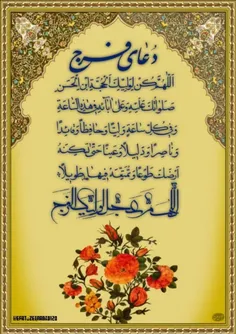 دعای فرج
اَللّهُمَّ كُنْ لِوَلِيِّكَ الْحُجَّةِ ابْنِ الْحَسَنِ
صَلَواتُكَ عَلَيْهِ وَعَلى آبائِهِ فِي هذِهِ السّاعَةِ
وَفِي كُلِّ ساعَةٍ وَلِيّاً وَحافِظاً وَقائِداً
وَناصِراً وَدَليلاً وَعَيْناً حَتّى تُسْكِنَهُ
أَرْضَكَ طَوْعاً وَتُمَتِّعَهُ فيها طَويلاً
اللهم عجل لوليك الفرج